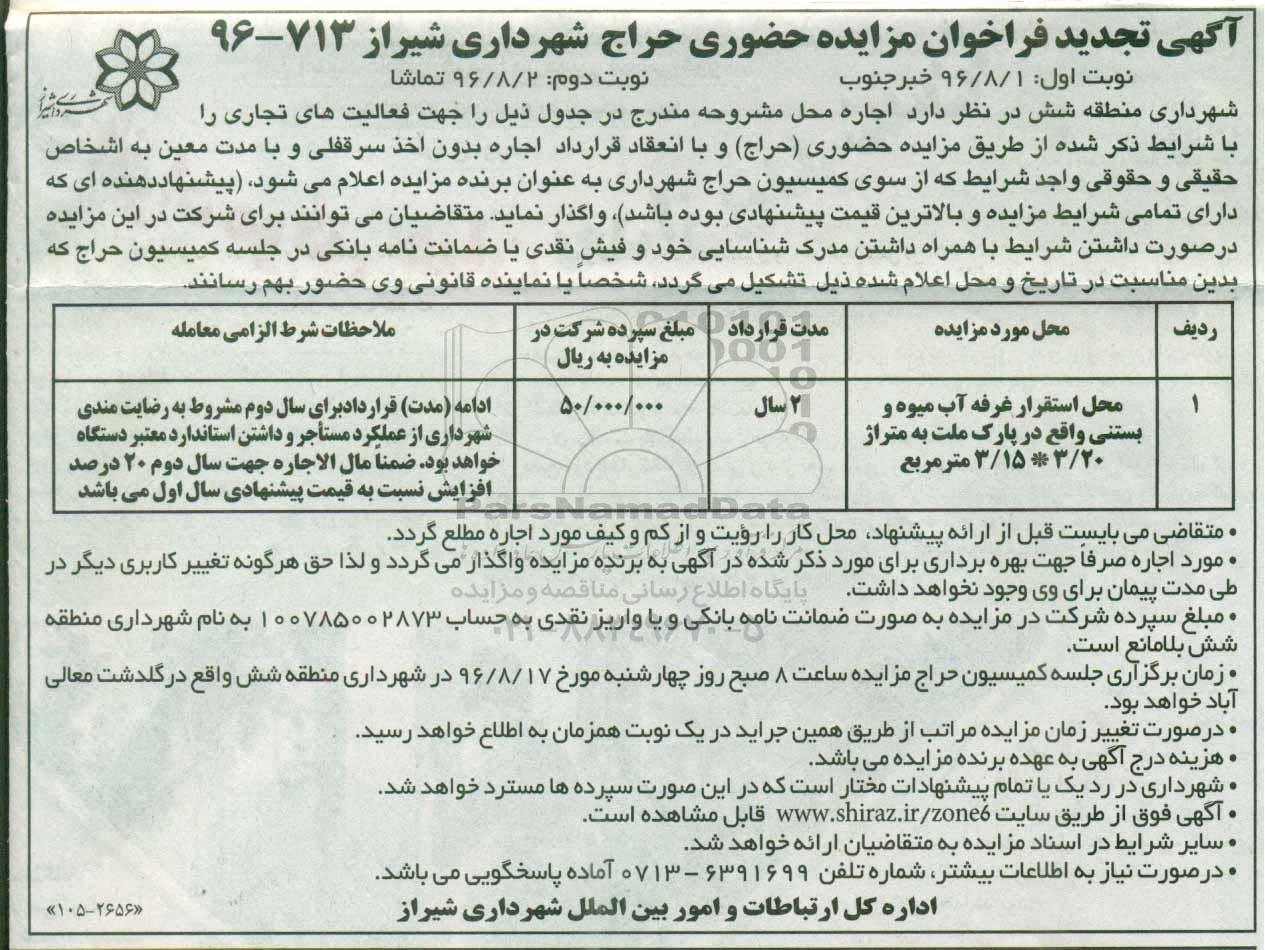 آگهی تجدید فراخوان مزایده حضوری حراج شهرداری شیراز ۷۱۳-۹۶
نوبت اول: ۹۶/۸/۱ خبرجنوب نوبت دوم: ۹۶/۸/۲ تماشا
شهرداری شیراز
شهرداری منطقه شش در نظر دارد اجاره محل مشروحه مندرج در جدول ذیل را جهت فعالیت های تجاری را
با شرایط ذکر شده از طریق مزایده حضوری (حراج) و با انعقاد قرارداد اجاره بدون اخذ سرقفلی و با مدت معین به اشخاص
حقیقی و حقوقی واجد شرایط که از سوی کمیسیون حراج شهرداری به عنوان برنده مزایده اعلام می شود، (پیشنهاددهنده ای که
دارای تمامی شرایط مزایده و بالاترین قیمت پیشنهادی بوده باشد)، واگذار نماید. متقاضیان می توانند برای شرکت در این مزایده
درصورت داشتن شرایط با همراه داشتن مدرک شناسایی خود و فیش نقدی یا ضمانت نامه بانکی در جلسه کمیسیون حراج که
بدین مناسبت در تاریخ و محل اعلام شده ذیل تشکیل می گردد، شخصاً یا نماینده قانونی وی حضور بهم رسانند.
ردیف محل مورد مزایده مدت قرارداد مبلغ سپرده شرکت در ملاحظات شرط الزامی معامله
مزایده به ریال
۱ محل استقرار غرفه آب میوه و ۲ سال ۵۰/۰۰۰/۰۰۰ ادامه (مدت) قراردادبرای سال دوم مشروط به رضایت مندی
بستنی واقع در پارک ملت به متراژ شهرداری از عملکرد مستأجر و داشتن استاندارد معتبر دستگاه
۳/۲۰ * ۳/۱۵ مترمربع خواهد بود. ضمناً مال الاجاره جهت سال دوم ۲۰ درصد
افزایش نسبت به قیمت پیشنهادی سال اول می باشد
ParsNamadData
• متقاضی می بایست قبل از ارائه پیشنهاد، محل کار را رؤیت و از کم و کیف مورد اجاره مطلع گردد.
• مورد اجاره صرفاً جهت بهره برداری برای مورد ذکر شده در آگهی به برنده مزایده واگذار می گردد و لذا حق هرگونه تغییر کاربری دیگر در
طی مدت پیمان برای وی وجود نخواهد داشت.
پایگاه اطلاع رسانی مناقصه و مزایده
• مبلغ سپرده شرکت در مزایده به صورت ضمانت نامه بانکی و یا واریز نقدی به حساب ۱۰۰۷۸۵۰۰۲۸۷۳ به نام شهرداری منطقه
شش بلامانع است.
• زمان برگزاری جلسه کمیسیون حراج مزایده ساعت ۸ صبح روز چهارشنبه مورخ ۹۶/۸/۱۷ در شهرداری منطقه شش واقع در گلدشت معالی
آباد خواهد بود.
• درصورت تغییر زمان مزایده مراتب از طریق همین جراید در یک نوبت همزمان به اطلاع خواهد رسید.
• هزینه درج آگهی به عهده برنده مزایده می باشد.
• شهرداری در رد یک یا تمام پیشنهادات مختار است که در این صورت سپرده ها مسترد خواهد شد.
• آگهی فوق از طریق سایت www.shiraz.ir/zone6 قابل مشاهده است.
• سایر شرایط در اسناد مزایده به متقاضیان ارائه خواهد شد.
• درصورت نیاز به اطلاعات بیشتر، شماره تلفن ۶۳۹۱۶۹۹-۰۷۱۳ آماده پاسخگویی می باشد.
اداره کل ارتباطات و امور بین الملل شهرداری شیراز
«۱۰۵-۲۶۵۶»